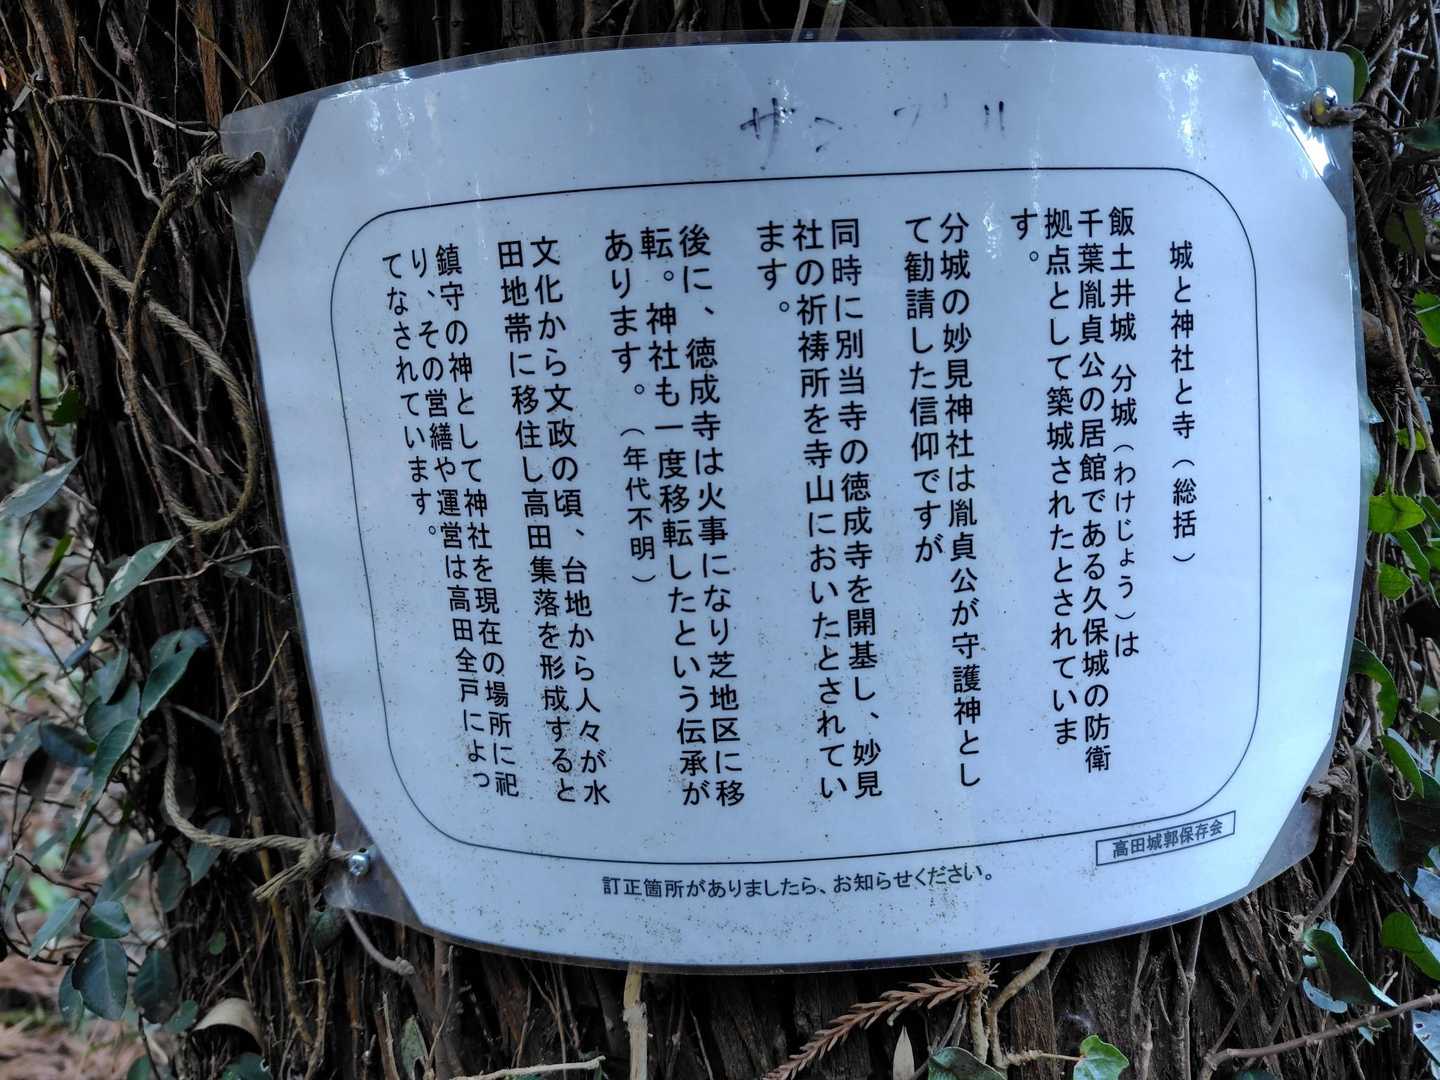 サンプル
城と神社と寺（総括）
飯土井城 分城（わけじょう）は
千葉胤貞公の居館である久保城の防衛
拠点として築城されたとされていま
す。
分城の妙見神社は胤貞公が守護神とし
て勧請した信仰ですが
同時に別当寺の徳成寺を開基し、妙見
社の祈祷所を寺山においたとされてい
ます。
後に、徳成寺は火事になり芝地区に移
転。神社も一度移転したという伝承が
あります。（年代不明）
文化から文政の頃、台地から人々が水
田地帯に移住し高田集落を形成すると
鎮守の神として神社を現在の場所に祀
り、その営繕や運営は高田全戸によっ
てなされています。
高田城郭保存会
訂正箇所がありましたら、お知らせください。